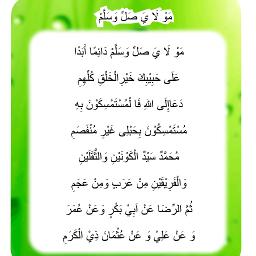 مَوْ لَا يَ صَلِّ وَسَلِّمْ
مَوْ لَا يَ صَلِّ وَسَلِّمْ دَائِمًا أَبَدًا
عَلَى حَبِيْبِكَ خَيْرِ الْخَلْقِ كُلِّهِمِ
دَعَاإِلَى اللهِ فَا لْمُسْتَمْسِكُوْنَ بِهِ
مُسْتَمْسِكُوْنَ بِحَبْلٍ غَيْرِ مُنْفَصِمِ
مُحَمَّدٌ سَيِّدُ الْكَوْنَيْنِ وَالثَّقَلَيْنِ
وَالْفَرِيْقَيْنِ مِنْ عَرَبٍ وَمِنْ عَجَمِ
ثُمَّ الرِّضَا عَنْ أَبِيْ بَكْرٍ وَعَنْ عُمَرَ
وَ عَنْ عَلِيٍّ وَ عَنْ عُثْمَانَ ذِيْ الْكَرَمِ